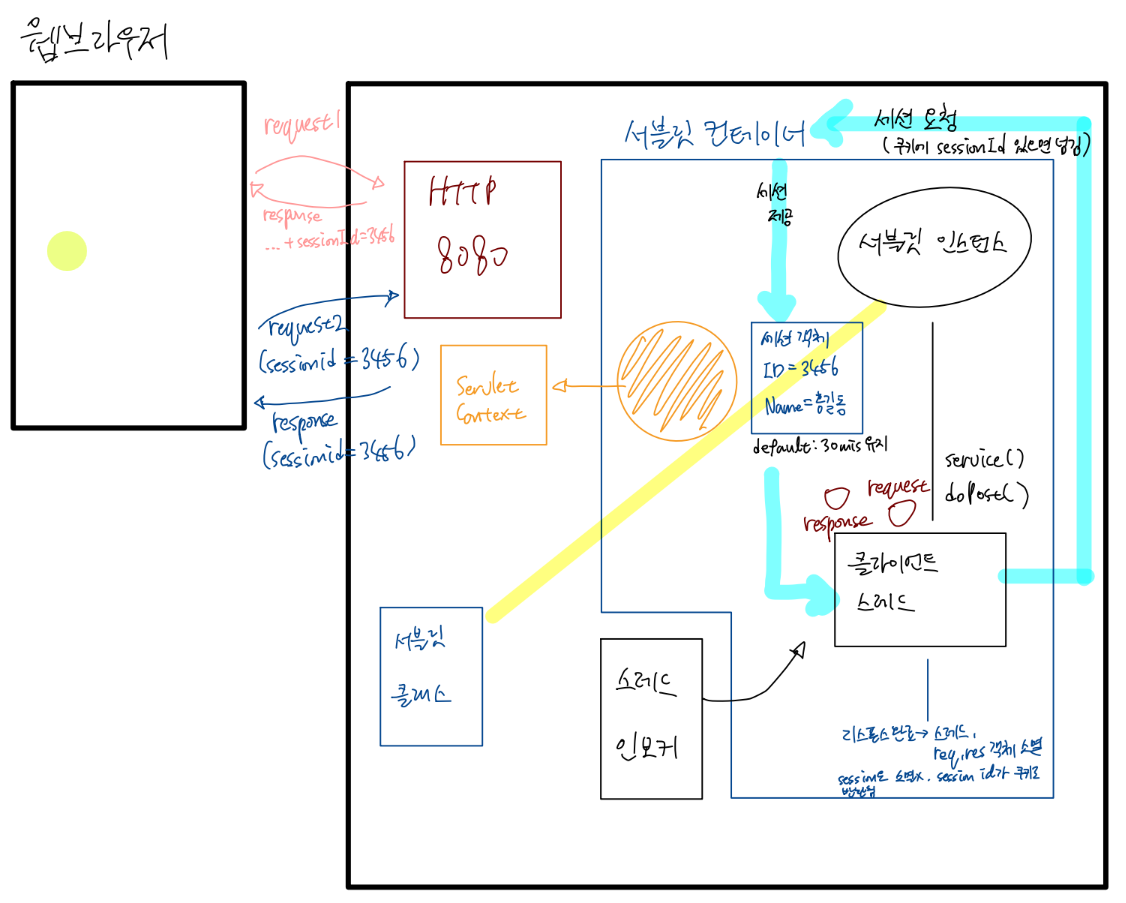 웹브라우저
request1
response
... + sessionId=3456
request2
(sessionid = 3456)
response
(sessionid=3456)
HTTP
8080
Servlet
Context
서블릿
클래스
서블릿 컨테이너
세션 요청
(쿠키에 sessionId 있으면 넘김)
세션
제공
서블릿 인스턴스
세션 객체
ID = 3456
Name=홍길동
default: 30mis 유지
service()
doPost()
request
response
클라이언트
스레드
스레드
인보커
리스폰스 완료→ 스레드,
req, res 객체 소멸
session은 소멸x. session id가 쿠키로
반환됨